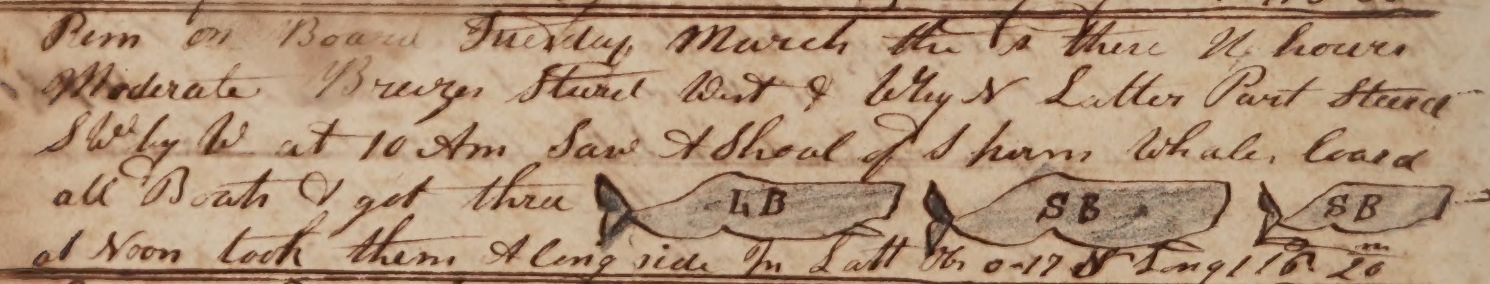 Rem on Board Tuesday March the 1s these 24 hours
Moderate Breezes Sturd West & W by N Latter Part Steerd
S W by W at 10 Am Saw A Shoal of Sperm Whales loard
all Boats & got three LB SB SB
at Noon took them A long side In Latt 0-17 N Long 116 20 m